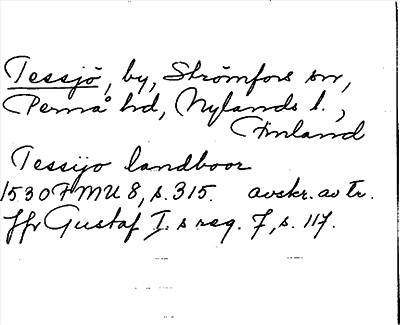 Tessjö, by, Strömfors sn,
Pernå hd, Nylands l.,
Finland
Tessijo landboor
1530 FMU 8, s. 315. avskr. av tr.
Jfr Gustaf I. s reg. 7, s. 117.